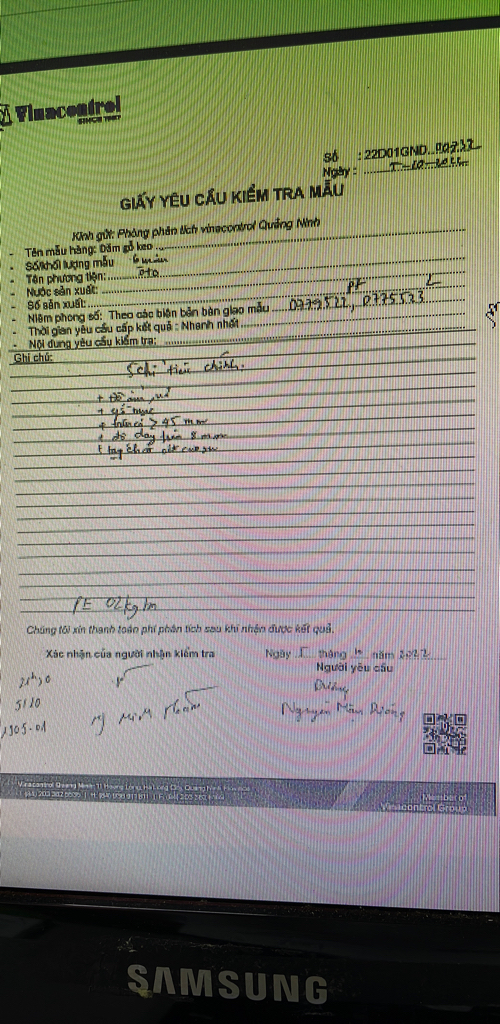 Vinacontrol
SINCE 1957
Số : 22D01GND..00732
Ngày : 5-10-2022
GIẤY YÊU CẦU KIỂM TRA MẪU
Kính gửi: Phòng phân tích vinacontrol Quảng Ninh
- Tên mẫu hàng: Dăm gỗ keo
- Số/khối lượng mẫu 6 mẫu
- Tên phương tiện: ôtô
- Nước sản xuất:
- Số sản xuất:
- Niêm phong số: Theo các biên bản bàn giao mẫu 0779522, 0775523
- Thời gian yêu cầu cấp kết quả : Nhanh nhất
- Nội dung yêu cầu kiểm tra:
Ghi chú:
5 chỉ tiêu chính.
+ Độ ẩm
+ gỗ mục
+ trên cỡ ≥ 45 mm
+ độ dày trên 8 mm
+ tạp chất
PE 02kg/m
Chúng tôi xin thanh toán phí phân tích sau khi nhận được kết quả.
Xác nhận của người nhận kiểm tra
Ngày 5 tháng 10 năm 2022
Người yêu cầu
Dương
Nguyễn Dương
5/10
1305-01
Vinacontrol Quang Ninh: 11 Hoang Long, Ha Long City, Quang Ninh Province
Member of
Vinacontrol Group
SAMSUNG